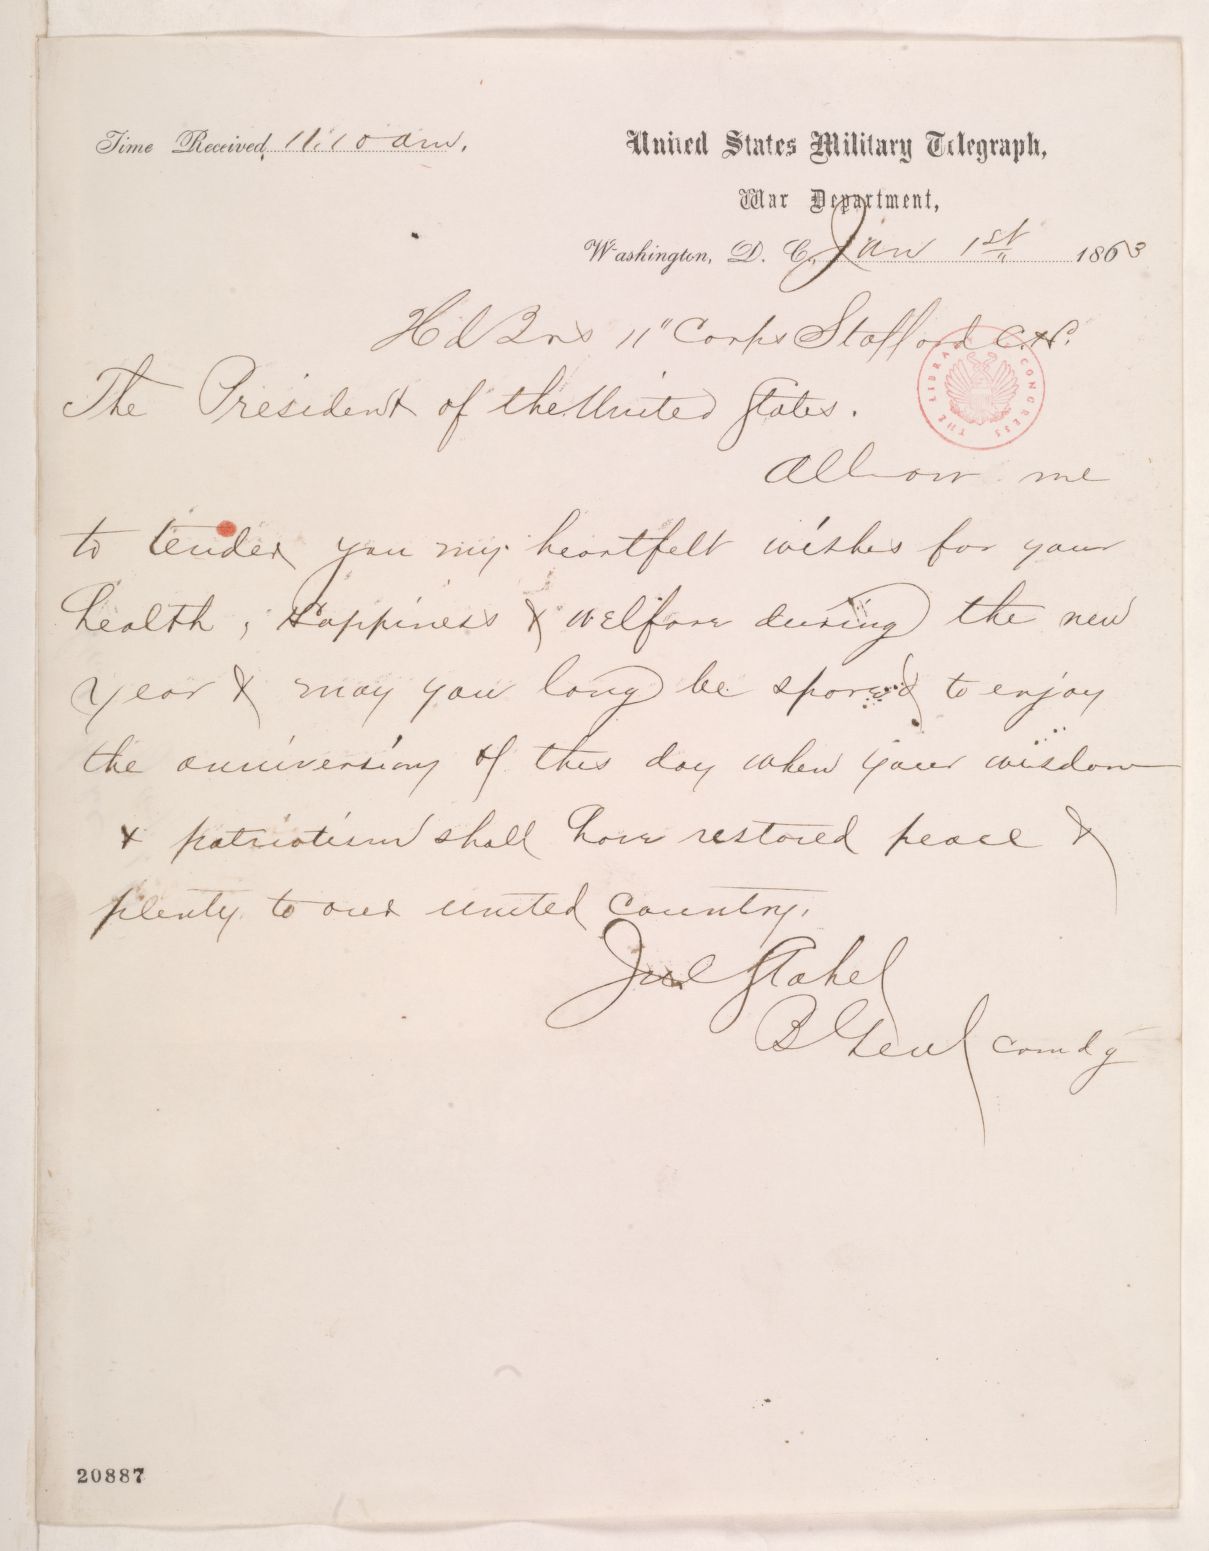 Time Received, 11.10 am.
United States Military Telegraph,
War Department,
Washington, D. C., Jan 1st 1863
Hd Qrs 11" Corps Stafford C.H.
THE LIBRARY OF CONGRESS
The President of the United States.
Allow me
to tender you my heartfelt wishes for your
health, Happiness & welfare during the new
year & may you long be spared to enjoy
the anniversary of this day when your wisdom
& patriotism shall have restored peace &
plenty to our united country.
Jul Stahel
B Genl comdg
20887